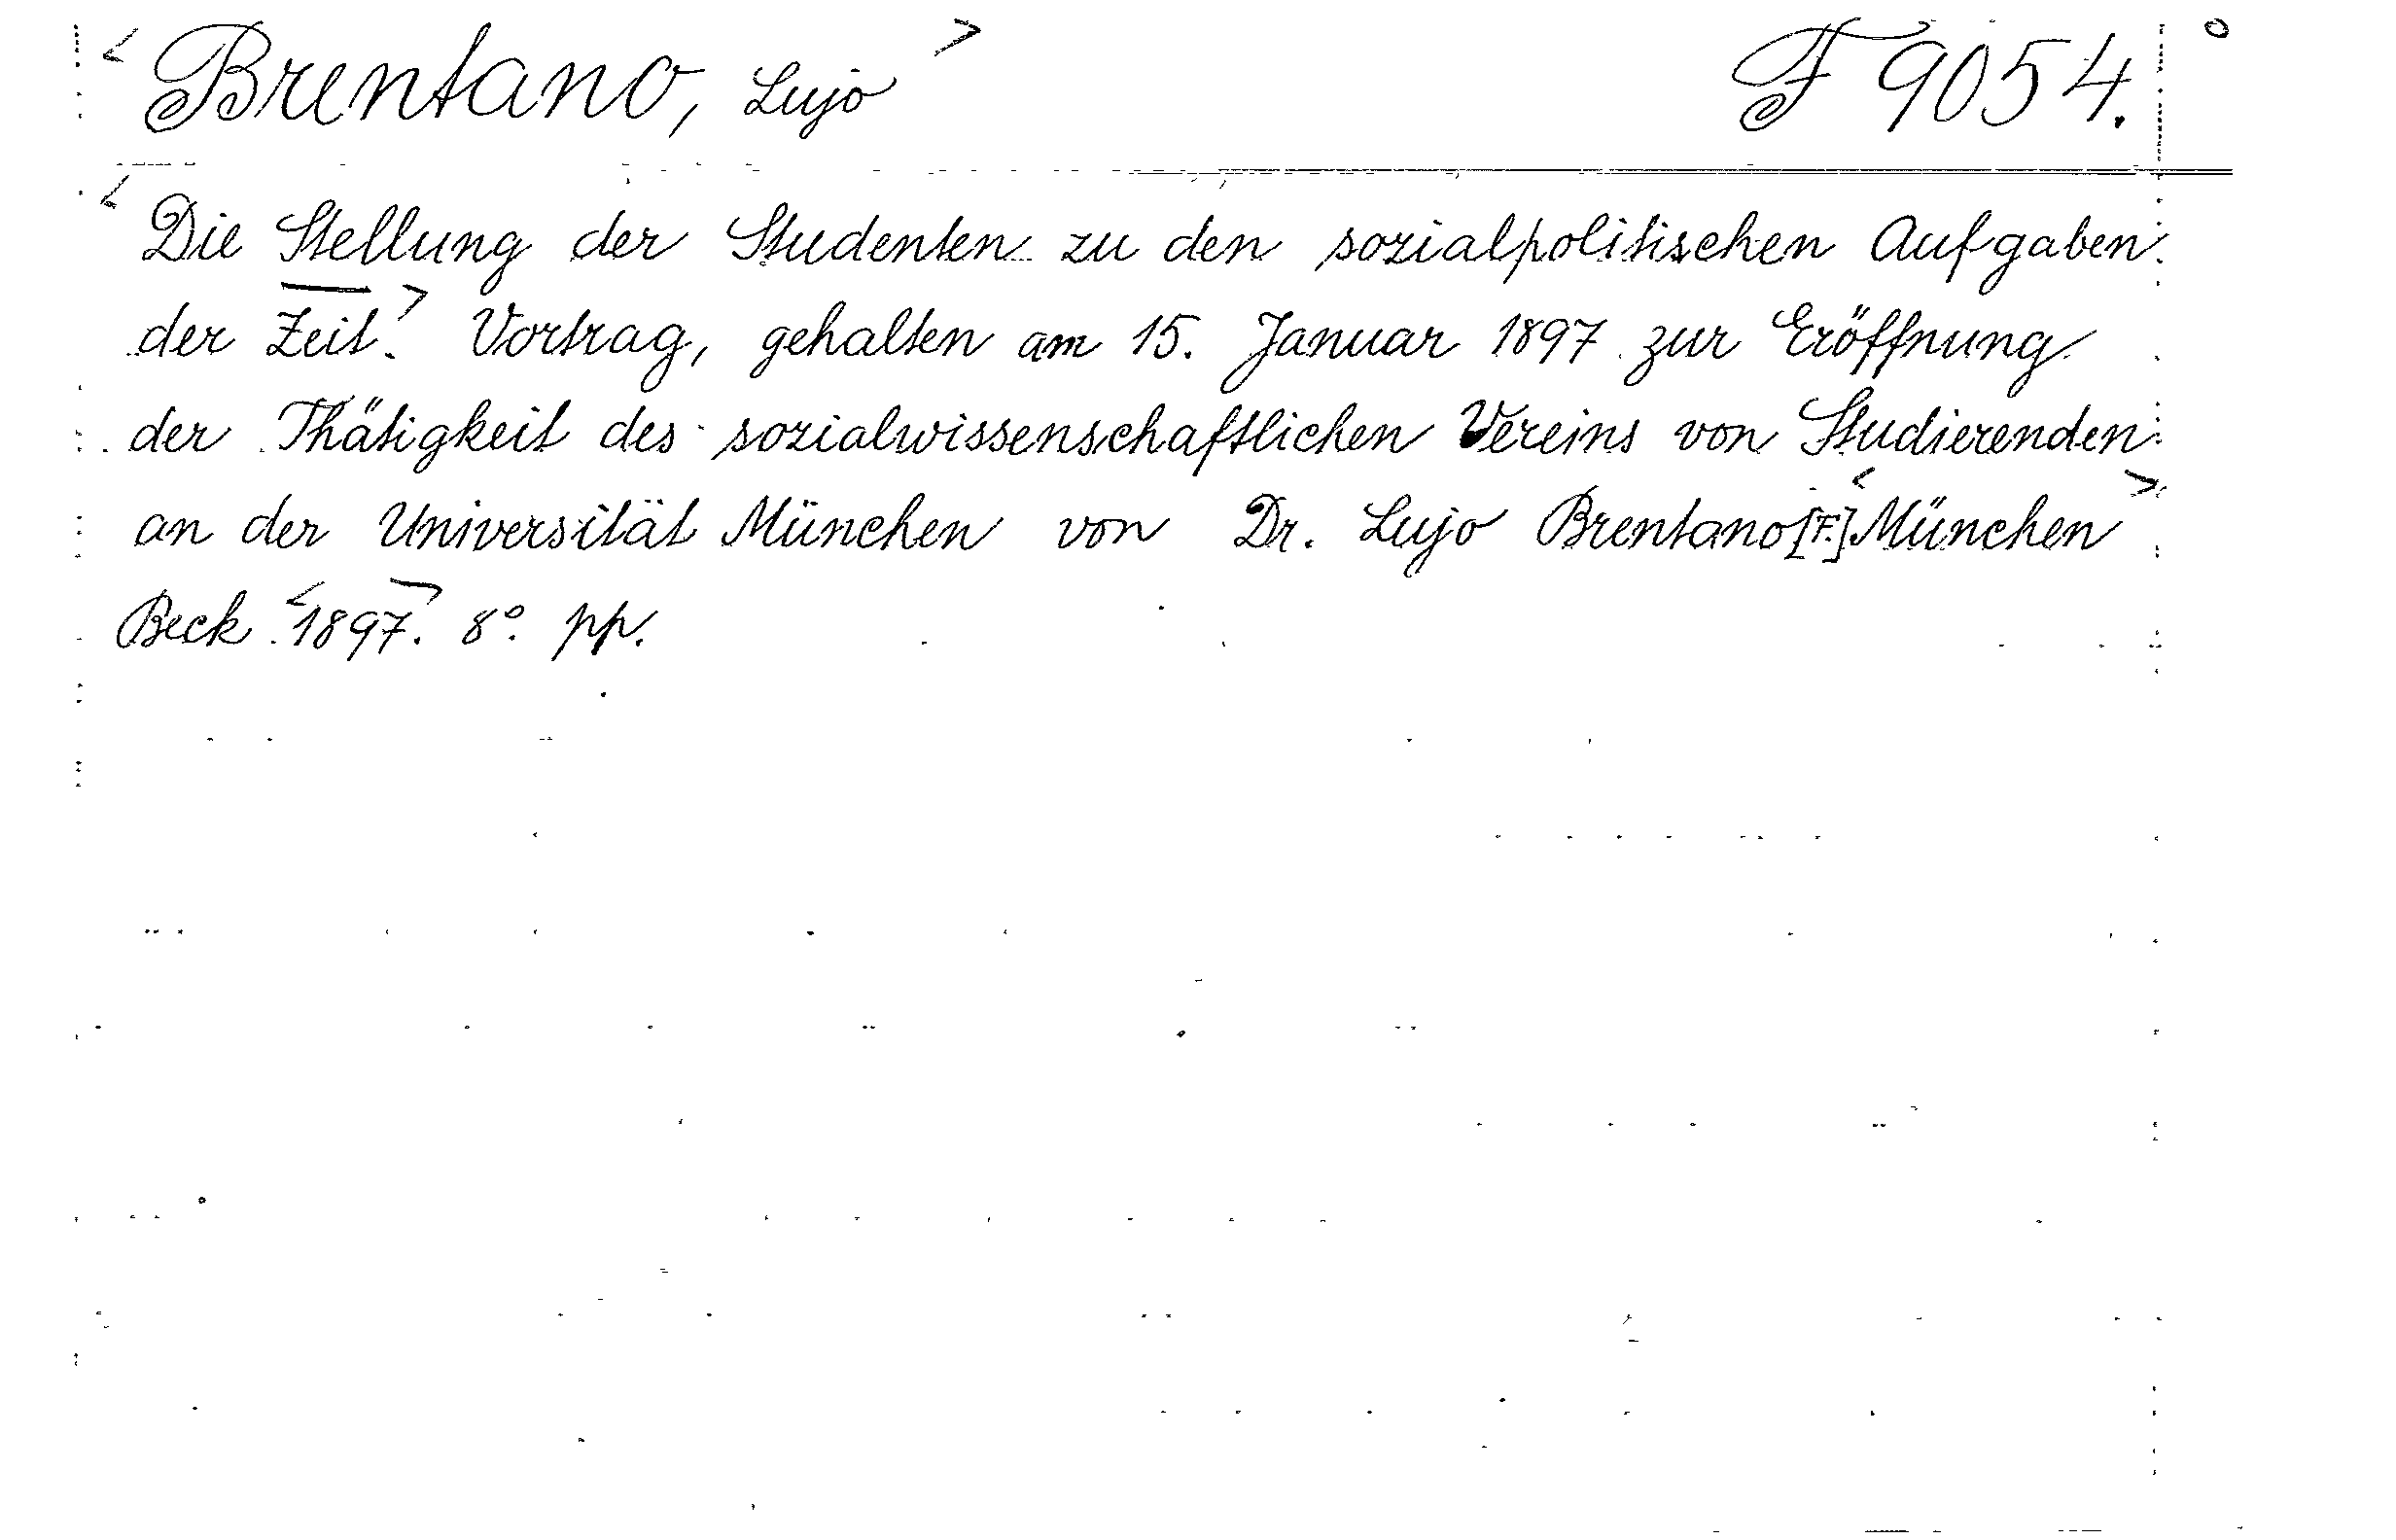 <Brentano, Lujo> F 9054.
<Die Stellung der Studenten zu den sozialpolitischen Aufgaben
der Zeit.> Vortrag, gehalten am 15. Januar 1897 zur Eröffnung
der Thätigkeit des sozialwissenschaftlichen Vereins von Studierenden
an der Universität München von Dr. Lujo Brentano[F.] <München>
Beck <1897>. 8°. pp.